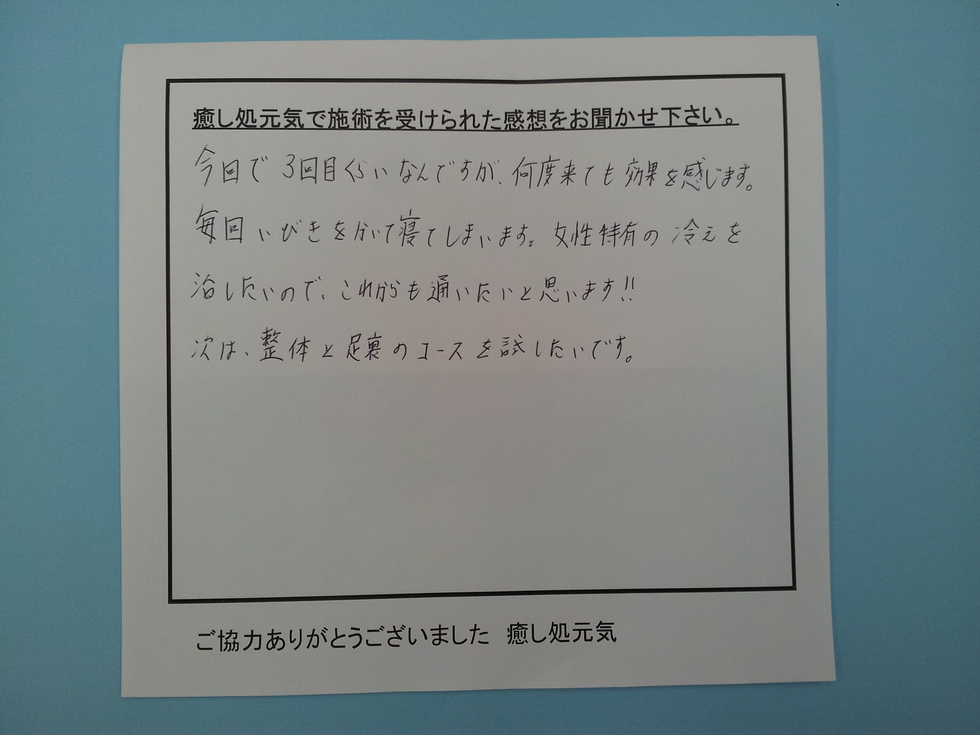 癒し処元気で施術を受けられた感想をお聞かせ下さい。
今回で3回目くらいなんですが、何度来ても効果を感じます。
毎回いびきをかいて寝てしまいます。女性特有の冷えを
治したいので、これからも通いたいと思います!!
次は、整体と足裏のコースを試したいです。
ご協力ありがとうございました 癒し処元気